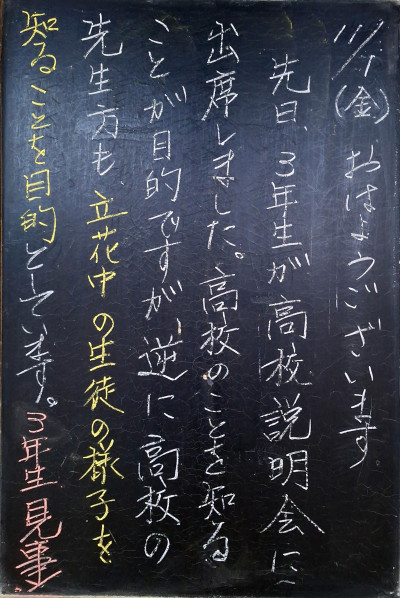 11/1(金)おはようございます。
先日、3年生が高校説明会に
出席しました。高校のことを知る
ことが目的ですが、逆に高校の
先生方も、立花中の生徒の様子を
知ることを目的としています。3年生見事!